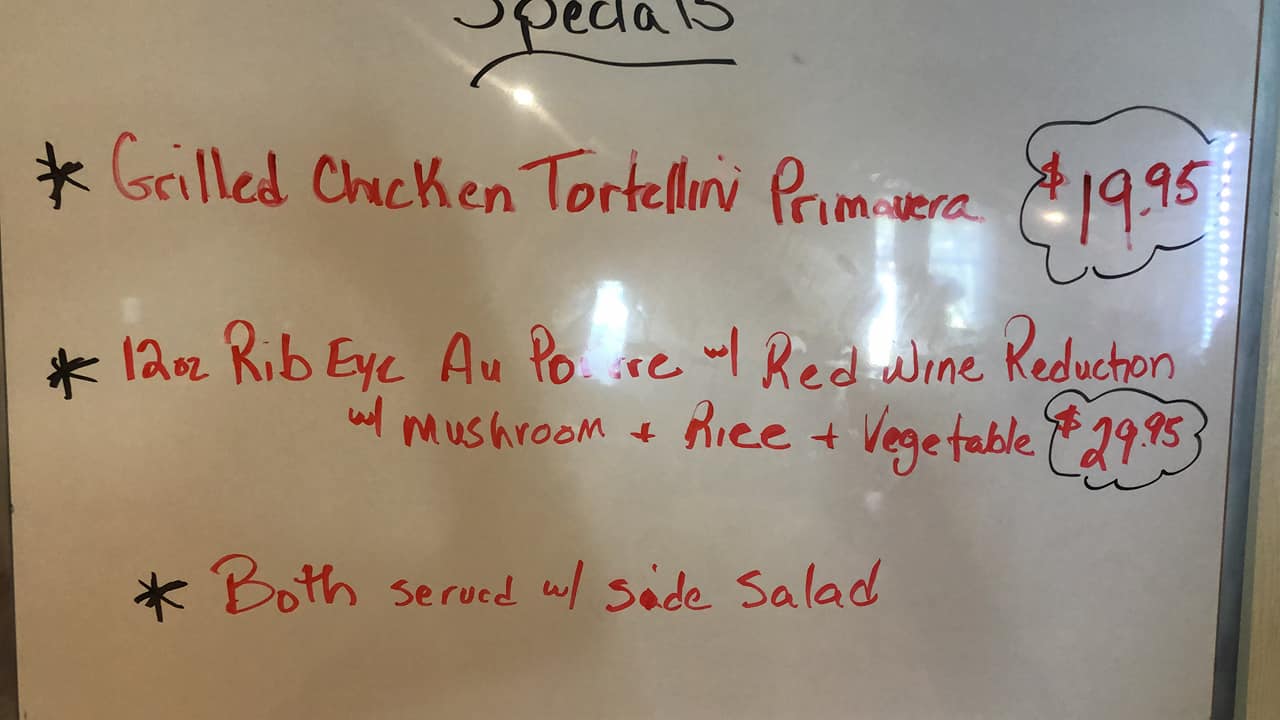 Specials
* Grilled Chicken Tortellini Primavera $19.95
* 12oz Rib Eye Au w/ Red Wine Reduction
w/ Mushroom + Rice + Vegetable $29.95
* Both served w/ side salad